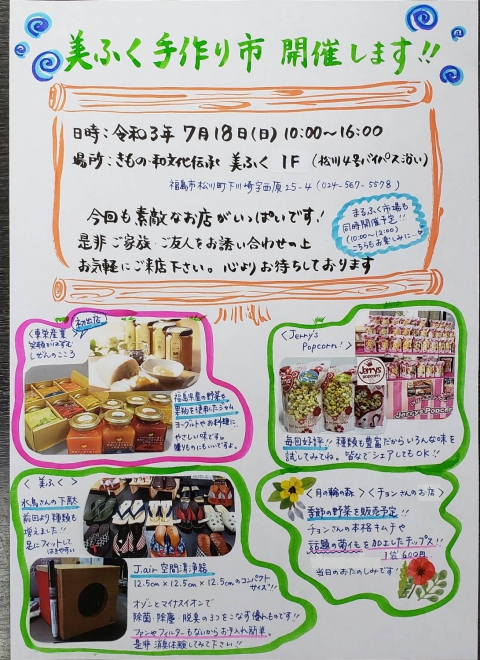 美ふく手作り市 開催します!!
日時:令和3年 7月18日(日) 10:00〜16:00
場所:きもの・和文化伝承 美ふく 1F (松川4号バイパス沿い)
福島市松川町下川崎字西原25-4 (024-567-5578)
今回も素敵なお店がいっぱいです!
是非ご家族・ご友人をお誘い合わせの上
お気軽にご来店下さい。心よりお待ちしております
まるふく市場も
同時開催予定!!
(10:00〜12:00)
こちらもお楽しみに…♡
初出店
〈東栄産業
笑顔がはずむ
しぜんのこころ
福島県産の野菜や
果物を使用したジャム
ヨーグルトやお料理に…
やさしい味ですよ。
贈りものにもいいですよ。
〈Jerry's
Popcorn!〉
Jerry's
popcorn
Jerry's Popcorn
毎回好評!! 種類も豊富だからいろんな味を
試してみてね。皆なでシェアしてもOK!!
〈美ふく〉
水鳥さんの下駄
前回より種類も
増えました!!
足にフィットして
はきやすい
J.air 空間清浄器
12.5cm×12.5cm×12.5cmのコンパクト
サイズ!!
オゾンとマイナスイオンで
除菌・除塵・脱臭の3つをこなす優れものです!!
ファンやフィルターもないからお手入れ簡単。
是非 消臭体験してみて下さい!!
〈月の輪の森〉〈チョンさんのお店〉
季節の野菜を販売予定!!
チョンさんの本格キムチや
話題の菊イモを加工したチップス!!
1袋 600円
当日のおたのしみです!